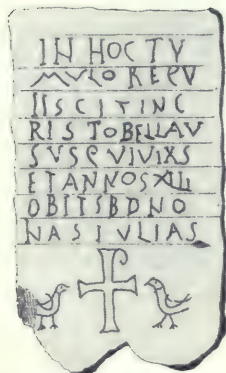 IN HOC TV
MVLO REQV
IISCIT IN C
RISTO BELLAV
SVS QVI VIXS
ET ANNOS XLII
OBIIT SB D NO
NAS IVLIAS